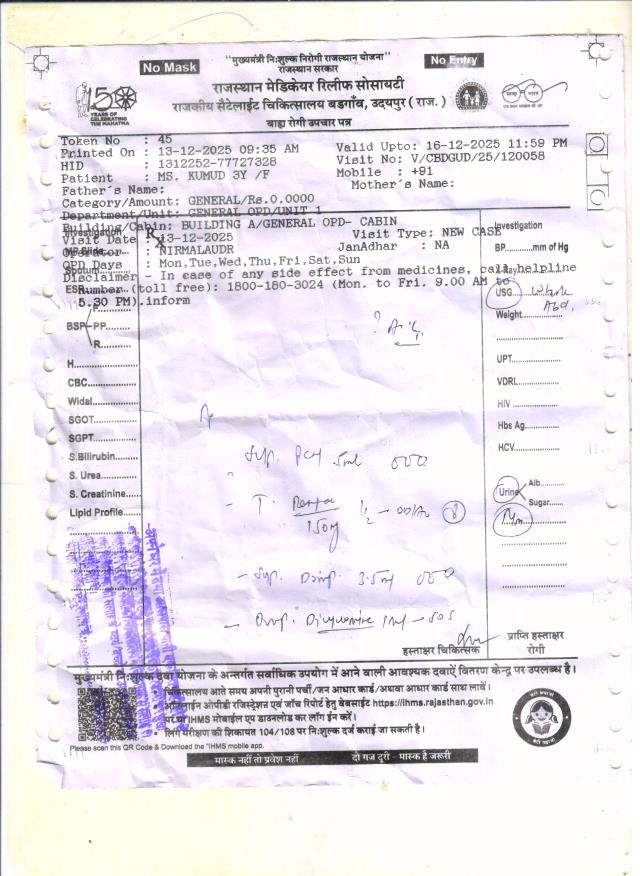 "मुख्यमंत्री निःशुल्क निरोगी राजस्थान योजना"
राजस्थान सरकार
No Mask
No Entry
राजस्थान मेडिकेयर रिलीफ सोसायटी
राजकीय सैटेलाईट चिकित्सालय बडगाँव, उदयपुर (राज.)
बाह्य रोगी उपचार पत्र
YEARS OF
CELEBRATING
THE MAHATMA
Token No : 45
Printed On : 13-12-2025 09:35 AM Valid Upto: 16-12-2025 11:59 PM
HID : 1312252-77727328 Visit No: V/CBDGUD/25/120058
Patient : MS. KUMUD 3Y /F Mobile : +91
Father's Name: Mother's Name:
Category/Amount: GENERAL/Rs.0.0000
Department/Unit: GENERAL OPD/UNIT 1
Building/Cabin: BUILDING A/GENERAL OPD- CABIN
Visit Date : 13-12-2025 Visit Type: NEW CASE
Operator : NIRMALAUDR JanAadhar : NA
OPD Days : Mon,Tue,Wed,Thu,Fri,Sat,Sun
Disclaimer - In case of any side effect from medicines, call helpline
Number (toll free): 1800-180-3024 (Mon. to Fri. 9.00 AM to
5.30 PM).inform
Investigation
Rx
MP Slide
Sputum
ESR
BSP
F
PP
R
H
CBC
Widal
SGOT
SGPT
S.Bilirubin
S. Urea
S. Creatinine
Lipid Profile
Investigation
BP mm of Hg
X-Ray
USG Whole
Abd.
Weight
UPT
VDRL
HIV
Hbs Ag
HCV
Urine Alb
Sugar
Syp. PCM 5ml
T.
150mg
Syp. 3.5ml
1ml - SOS
हस्ताक्षर चिकित्सक
प्राप्ति हस्ताक्षर
रोगी
मुख्यमंत्री निःशुल्क दवा योजना के अन्तर्गत सर्वाधिक उपयोग में आने वाली आवश्यक दवाऐं वितरण केन्द्र पर उपलब्ध है।
चिकित्सालय आते समय अपनी पुरानी पर्ची/जन आधार कार्ड/अथवा आधार कार्ड साथ लावें।
ऑनलाईन ओपीडी रजिस्ट्रेशन एवं जॉच रिपोर्ट हेतु बेबसाईट https://ihms.rajasthan.gov.in
पर या IHMS मोबाईल एप डाउनलोड कर लॉग ईन करें।
लिंग परीक्षण की शिकायत 104/108 पर निःशुल्क दर्ज कराई जा सकती है।
Please scan this QR Code & Download the "IHMS mobile app.
मास्क नहीं तो प्रवेश नहीं दो गज दूरी - मास्क है जरूरी